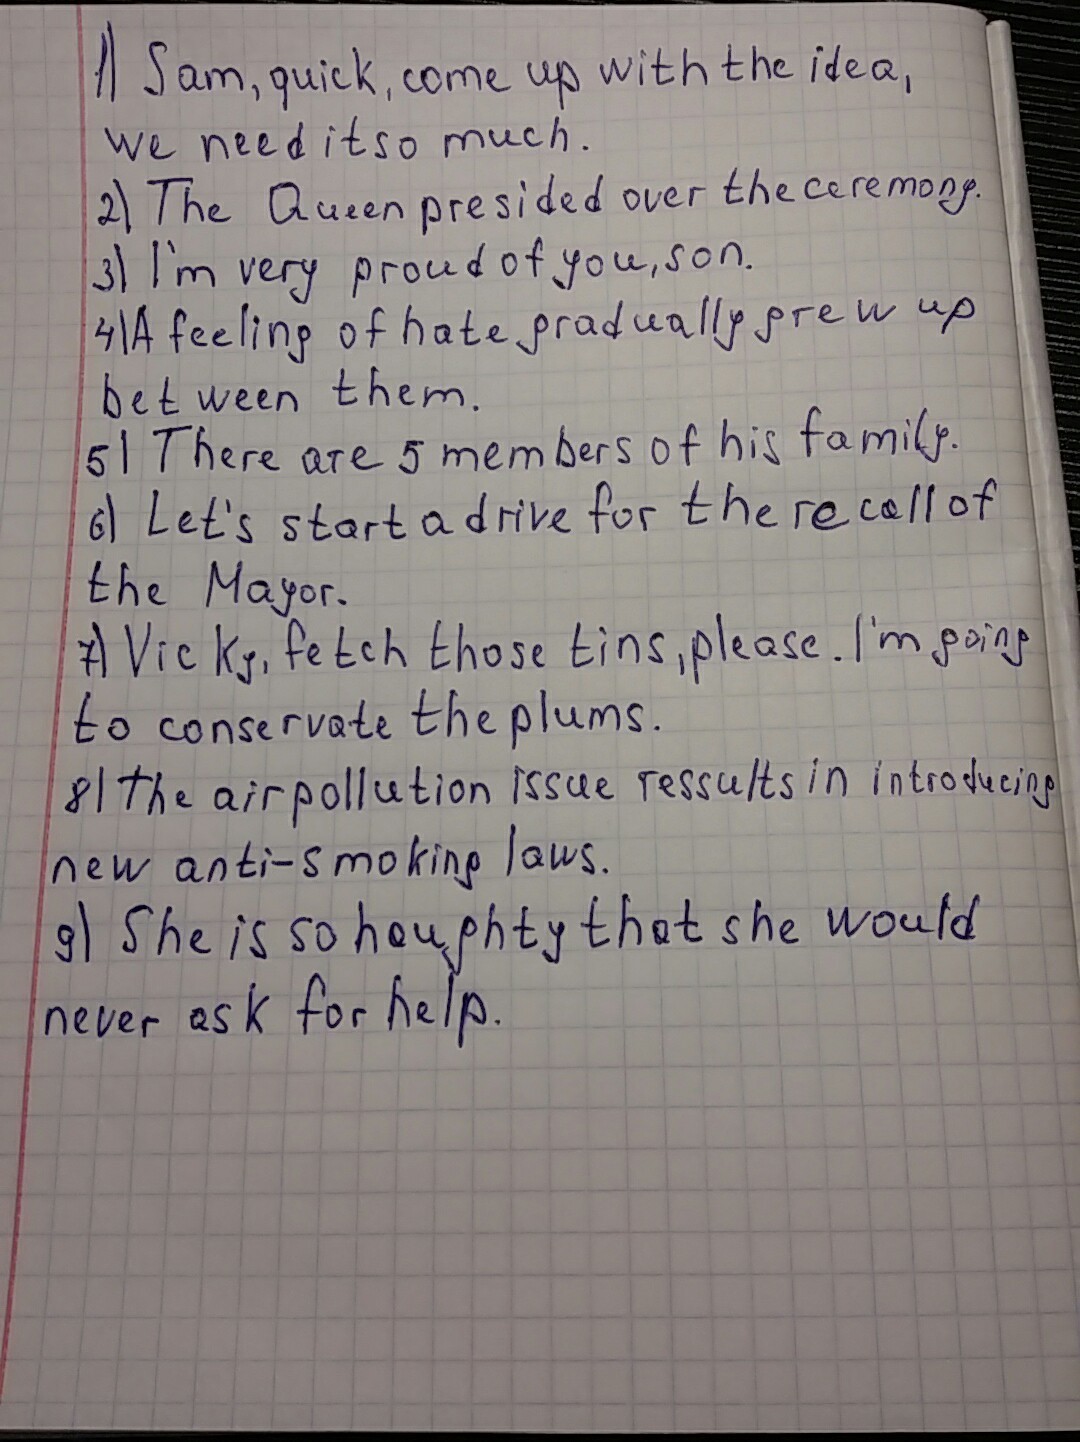 1) Sam, quick, come up with the idea,
we need it so much.
2) The Queen presided over the ceremony.
3) I'm very proud of you, son.
4) A feeling of hate gradually grew up
between them.
5) There are 5 members of his family.
6) Let's start a drive for the recall of
the Mayor.
7) Vicky, fetch those tins, please. I'm going
to conservate the plums.
8) The air pollution issue ressults in introducing
new anti-smoking laws.
9) She is so haughty that she would
never ask for help.